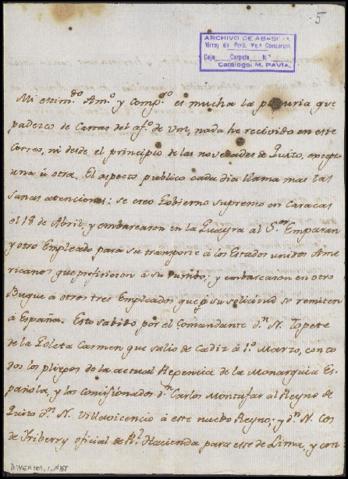 5
ARCHIVO DE ABASCAL
Virrey del Perú, Mar. Concordia
Caja Carpeta N.º
Catálogo: M. PAVIA.
Mi estim.do Am.o y comp.o es mucha la penuria que
padezco de Cartas del af.to de Vm, nada he recivido en este
Correo, ni desde el principio de las novedades de Quito, excepto
una ú otra. El aspecto publico cada dia llama mas las
sanas atenciones: se creo Gobierno Supremo en Caracas
el 18 de Abril, y embarcaron en la Guayra al S.or Emparan
y otro Empleado para su transporte á los Estados unidos Ame-
ricanos que prefirieron á su Partido; y embarcaron en otro
Buque á otros tres Empleados que p.r su solicitud se remiten
á España. Esto sabido por el Comandante d.n N. Topete
de la Goleta Carmen que salio de Cadiz á 1.o Marzo, con to-
dos los pliegos de la actual Regencia de la Monarquia Es-
pañola, y los comisionados d.n Carlos Montufar al Reyno de
Quito d.n N. Villavicencio á este nuebo Reyno; y d.n N. Cos
de Iriberry oficial de R.l Hacienda para esse de Lima, y con